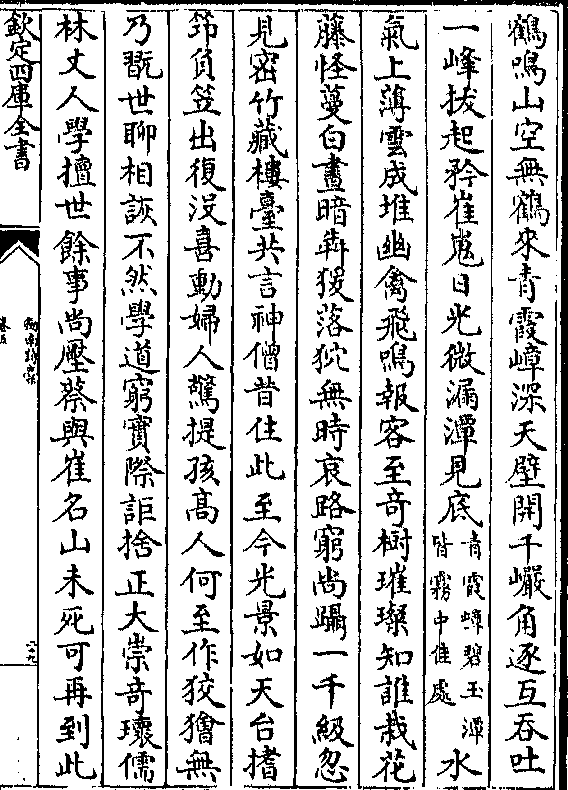 鶴鳴山空無鶴來青霞嶂深天壁開千巖角逐互吞吐
一峰拔起矜崔嵬日光微漏潭見底青霞嶂碧玉潭皆霧中佳處水
氣上薄雲成堆幽禽飛鳴報客至奇樹璀璨知誰栽花
藤怪蔓白晝暗犇猨落狖無時哀路窮尚躡一千級忽
見密竹藏樓臺共言神僧昔住此至今光景如天台搘
笻負笠出復沒喜動婦人驚提孩高人何至作狡獪無
乃翫世聊相詼不然學道窮實際詎捨正大崇奇瓌儒
林丈人學擅世餘事尚壓蔡與崔名山未死可再到此
欽定四庫全書
劍南詩稾
卷五
二十九